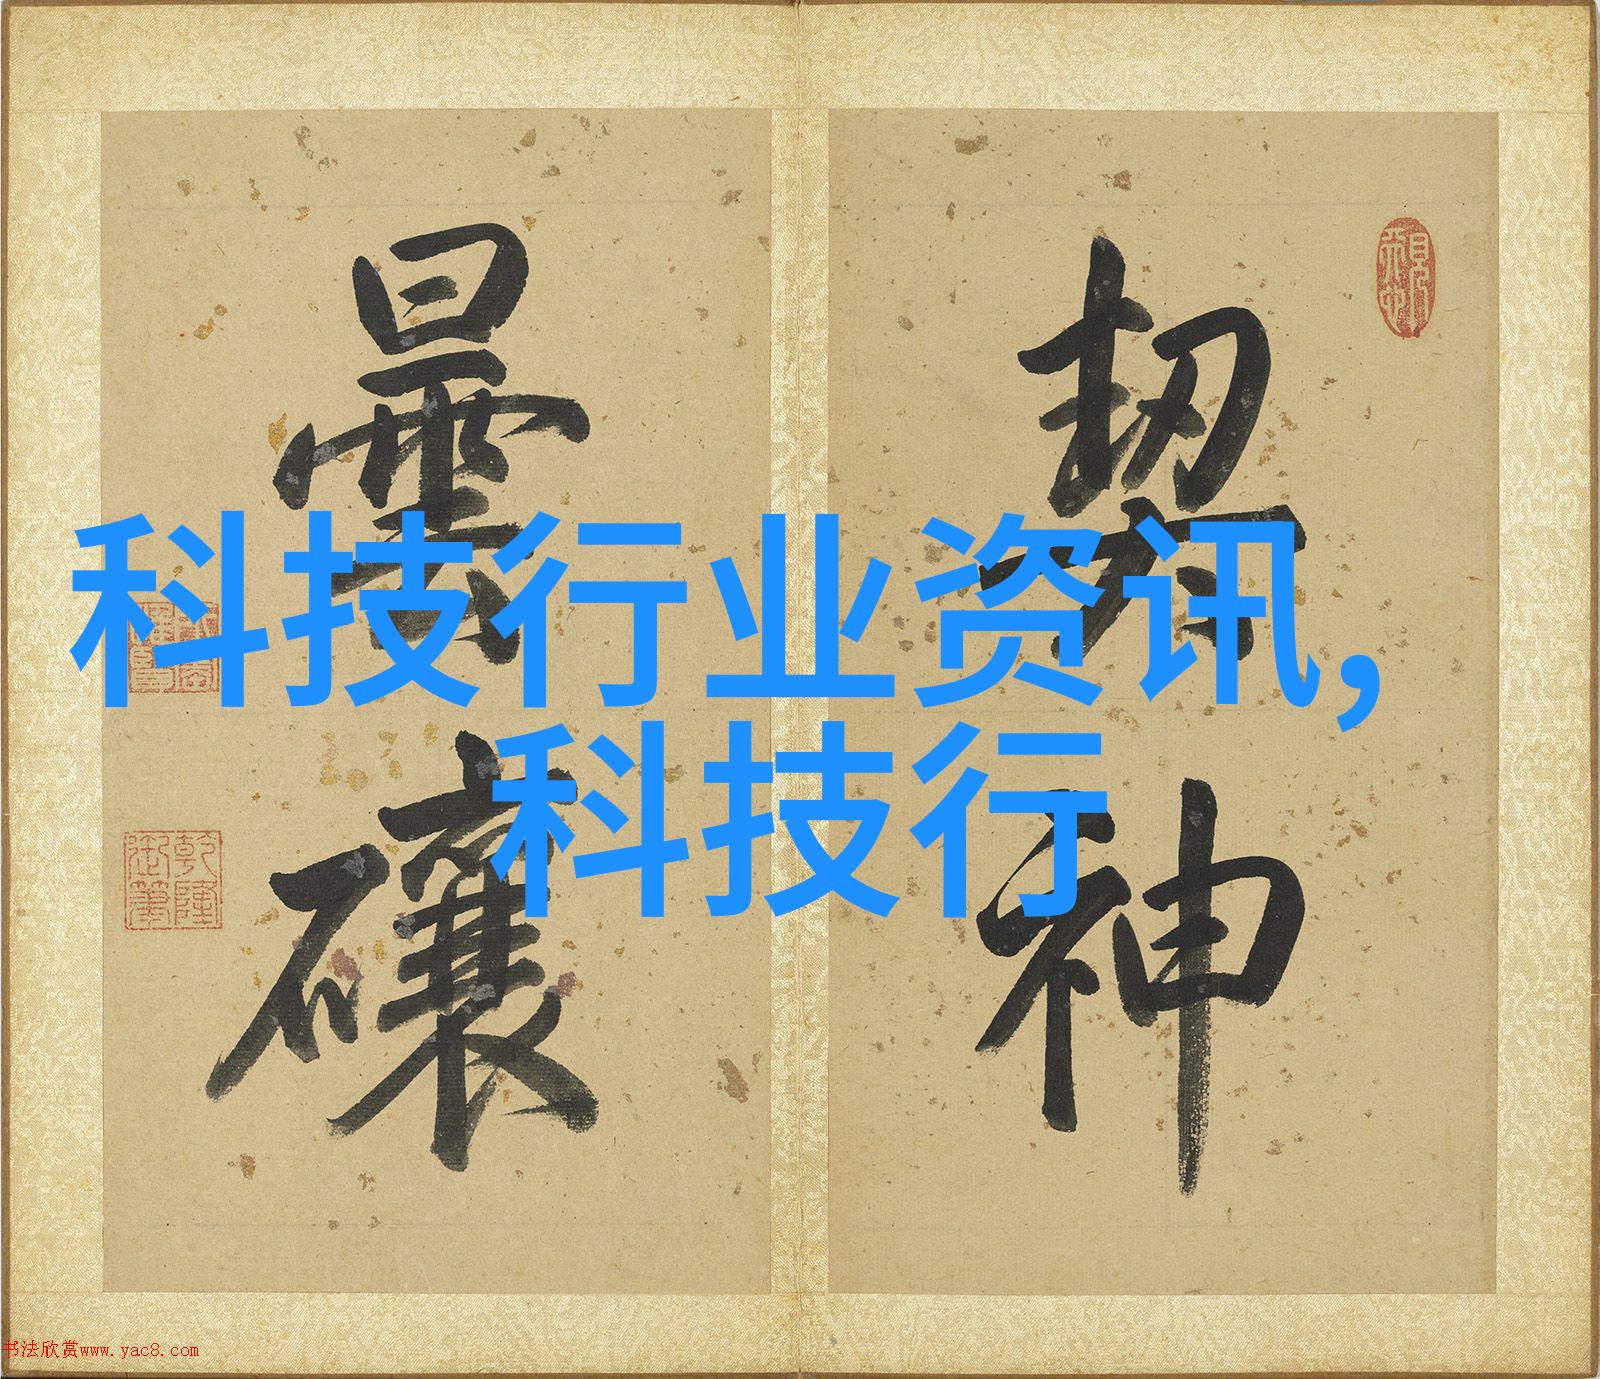 契神
曇礦
科技行业资讯,
科技行
乾隆
御筆
书法欣赏www.yac8.com